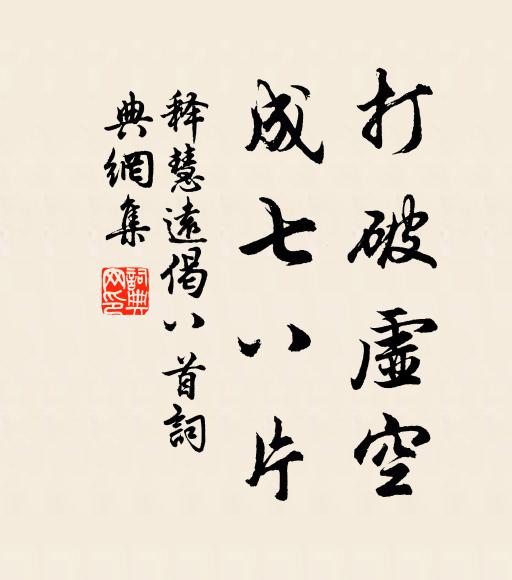 打破虛空
成七八片
释慧遠偈八首詞
典網集
詞典
网印